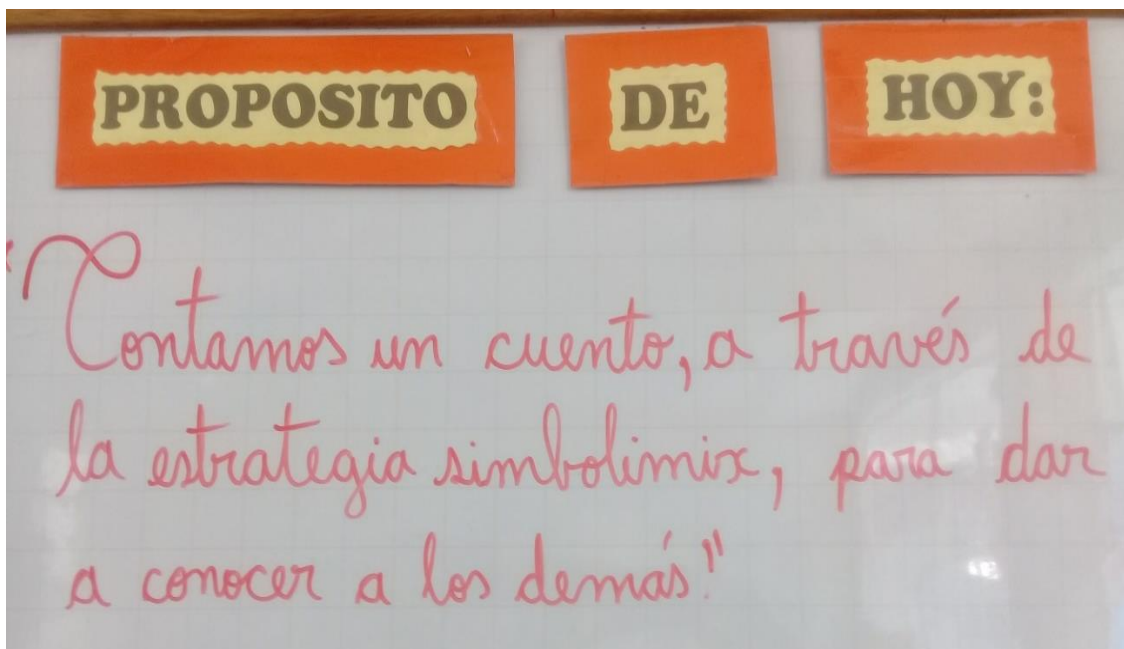 PROPOSITO DE HOY:
"Contamos un cuento, a través de
la estrategia simbolimix, para dar
a conocer a los demás!"